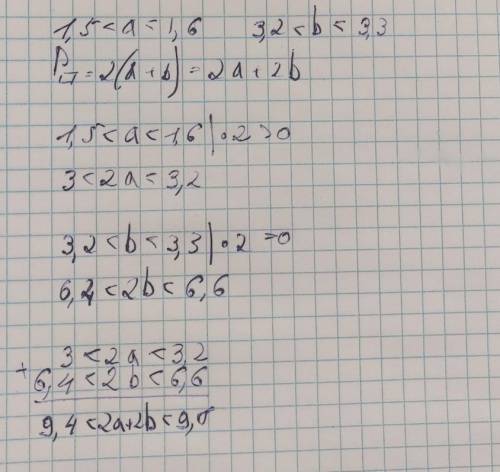 1,5 < a < 1,6 3,2 < b < 3,3
P = 2(a + b) = 2a + 2b
1,5 < a < 1,6 | • 2 > 0
3 < 2a < 3,2
3,2 < b < 3,3 | • 2 > 0
6,4 < 2b < 6,6
3 < 2a < 3,2
+ 6,4 < 2b < 6,6
9,4 < 2a + 2b < 9,8